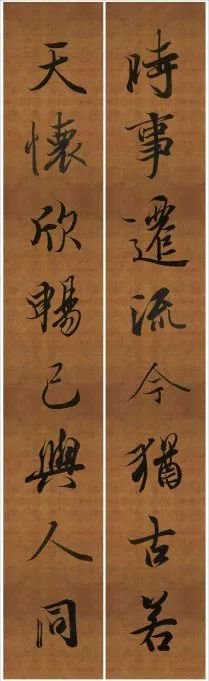 時事遷流今猶古若
天懷欣暢己與人同